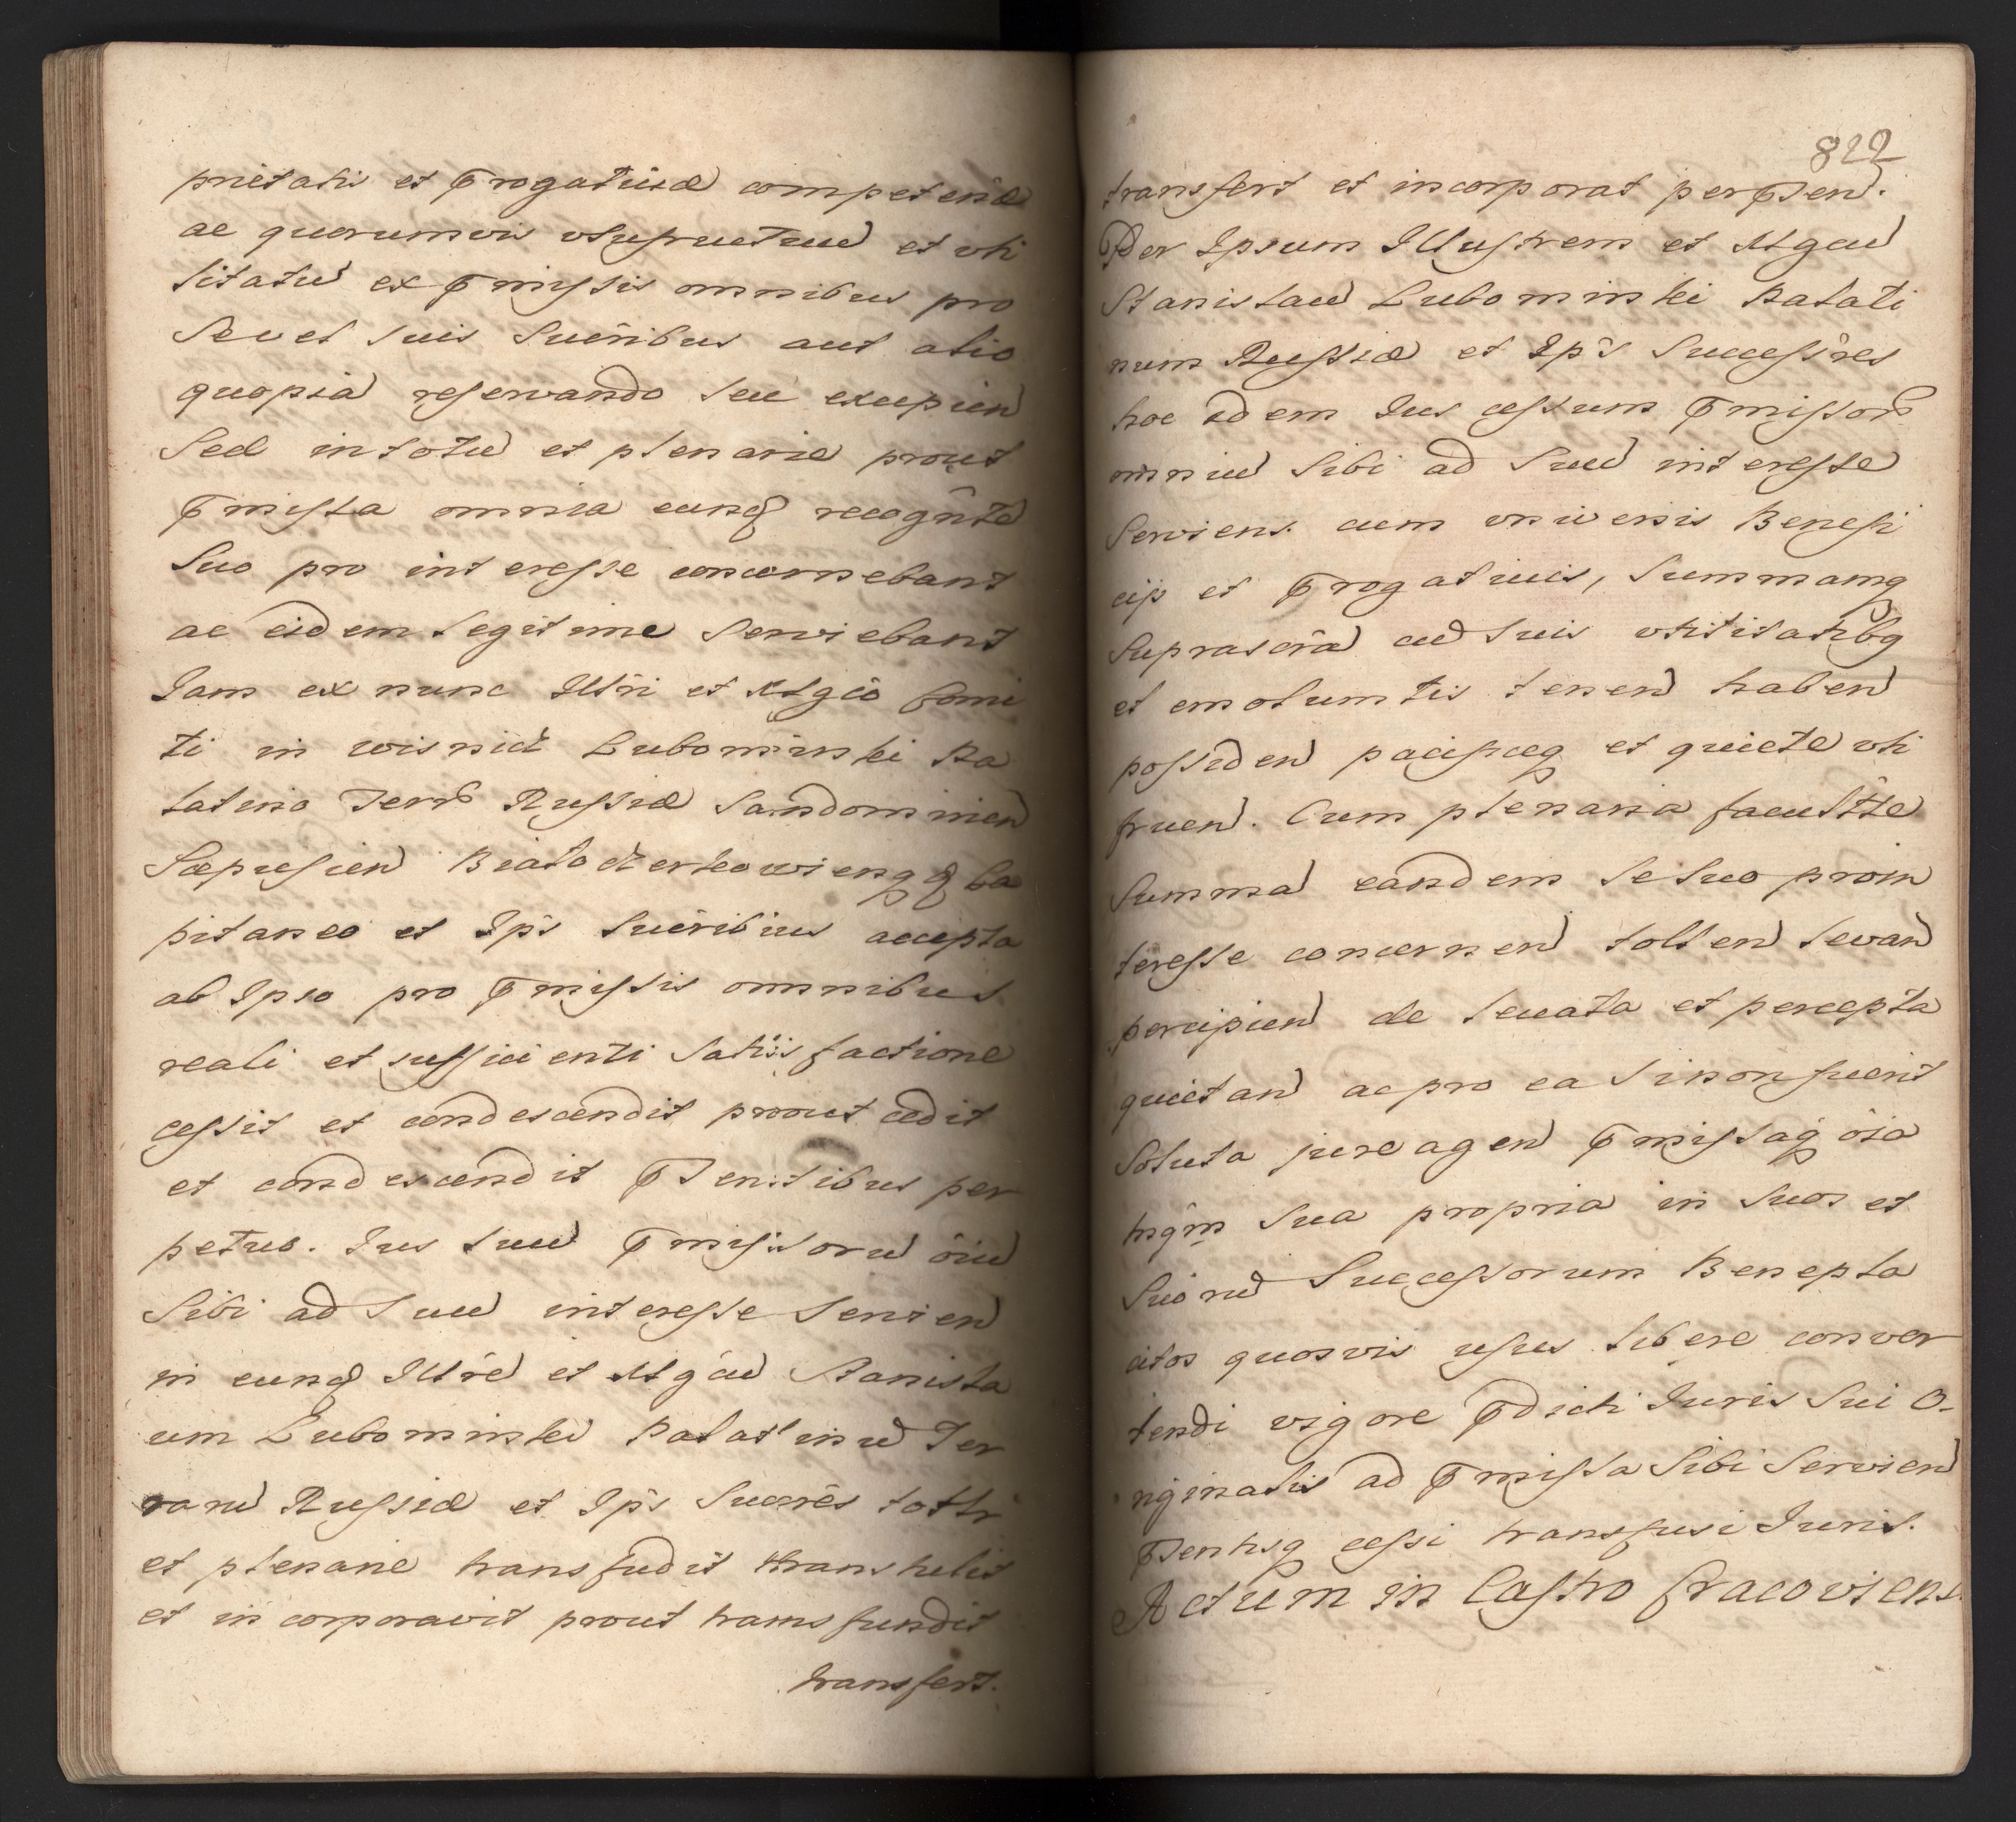 prietatis et p̄rogatiuæ competeñ
ac quorumvis vsufructuu̅ et vti
litatu̅ ex p̄missis omnibus pro
se vel suis Succ̃ribus aut alio
quopia̅ reservando seu excipien̅
Sed in totu̅ et plenarie prout
p̄missa omnia eunđ recogn̂te̅
suo pro interesse concernebant
ac eidem legitime serviebant
Iam ex nunc Illr̃i et Mg̃co Comi
ti in wisnicz Lubomirski Pa
latino Terr̃ Russiæ Sandomirien̅
Scepusien̅ Białocerkowienqq Ca
pitaneo et Ip̃s Succ̃ribus accepta
ab Ipso pro p̄missis omnibus
reali et sufficienti satisfactione
cessit et condescendit prout cedit
et condescendit p̄sentibus per
petuo. Ius suu̅ p̄missoru̅ õiu̅
Sibi ad suu̅ interesse servien̅
in eunđ Illr̃e̅ et Mg̃cu̅ Stanisla
um Lubomirski Palatinu̅ Ter
raru̅ Russiæ et Ip̃s Succr̃es totlr̃
et plenarie transfudit transtulit
et incorporavit prout transfundit
transfert.
822
transfert et incorporat per p̄sen̅.
Per Ipsum Illustrem et Mgcu̅
Stanislau̅ Lubomirski Palati
num Russiæ et Ip̃s Success̃res
hoc idem Ius cessum p̄missor̃
omniu̅ Sibi ad Suu̅ interesse
Serviens. cum vniversis Benefi
cijs et p̄rogativis, Summamq
suprascr̃a̅ cu̅ suis vtilitatibq
et emolumtis tenen̅ haben̅
possiden̅ pacificeq et quiete vti
fruen̅. Cum plenaria facultte
Summa̅ eandem se suo pro in
teresse concernen̅ tollen̅ levan̅
percipien̅ de levata et percepta
quietan̅ ac pro ea si non fuerit
soluta jure agen̅ p̄missaq̃ õia
tnq̃m sua propria in suos et
suoru̅ Successorum Benepla
citos quosvis usus libere conver
tendi vigore p̄dicti Iuris sui O-
riginalis ad p̄missa Sibi Servien̅
p̄sentisq cessi transfusi Iuris.
Actum in Castro Cracoviens.